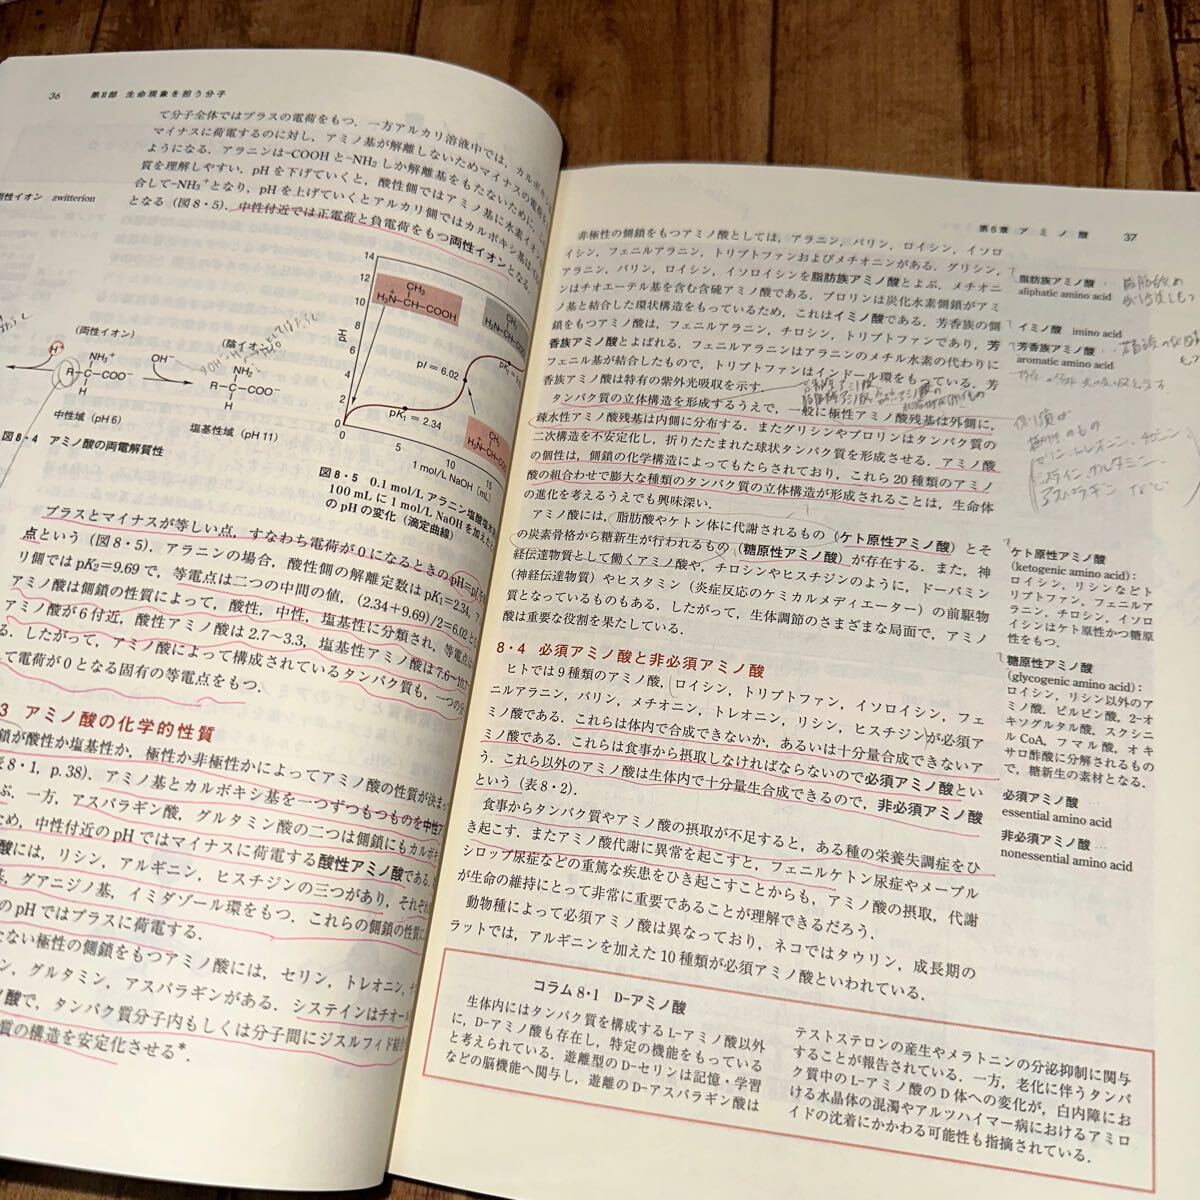 36 第II部 生命現象を担う分子
て分子全体ではプラスの電荷をもつ．一方アルカリ溶液中では，カルボキシ
マイナスに荷電するのに対し，アミノ基が解離しないためマイナスの電荷も
ようになる．アラニンは-COOHと-NH₂しか解離基をもたないために，
質を理解しやすい．pHを下げていくと，酸性側ではアミノ基に水素イオン
合して-NH₃⁺となり，pHを上げていくとアルカリ側ではカルボキシ基は
となる（図8・5）．中性付近では正電荷と負電荷をもつ両性イオンとなる．
両性イオン zwitterion
（両性イオン）
（陰イオン）
H⁺
NH₃⁺
R-C-COO⁻
H
OH⁻
NH₂
R-C-COO⁻
H
中性域（pH 6）
塩基性域（pH 11）
図8・4 アミノ酸の両電解質性
14
12
10
8
6
4
2
0
pH
CH₃
H₃N⁺-CH-COOH
CH₃
pI＝6.02
pK₁＝2.34
CH₃
5
10
15
1 mol/L NaOH〔mL〕
図8・5 0.1 mol/L アラニン塩酸塩水溶
100 mLに1 mol/L NaOHを加えた
のpHの変化（滴定曲線）
プラスとマイナスが等しい点，すなわち電荷が0になるときのpH＝pI
点という（図8・5）．アラニンの場合，酸性側の解離定数はpK₁＝2.34，
リ側ではpK₂＝9.69で，等電点は二つの中間の値，(2.34＋9.69)/2＝6.02と
アミノ酸は側鎖の性質によって，酸性，中性，塩基性に分類され，等電点は
アミノ酸が6付近，酸性アミノ酸は2.7～3.3，塩基性アミノ酸は7.6～10.7
る．したがって，アミノ酸によって構成されているタンパク質も，一つの
て電荷が0となる固有の等電点をもつ．
3 アミノ酸の化学的性質
鎖が酸性か塩基性か，極性か非極性かによってアミノ酸の性質が決まっ
表8・1, p.38）．アミノ基とカルボキシ基を一つずつもつものを中性ア
ぶ．一方，アスパラギン酸，グルタミン酸の二つは側鎖にもカルボキ
ため，中性付近のpHではマイナスに荷電する酸性アミノ酸である．
酸には，リシン，アルギニン，ヒスチジンの三つがあり，それぞれ
基，グアニジノ基，イミダゾール環をもつ．これらの側鎖の性質に
のpHではプラスに荷電する．
たない極性の側鎖をもつアミノ酸には，セリン，トレオニン，
ン，グルタミン，アスパラギンがある．システインはチオール
ノ酸で，タンパク質分子内もしくは分子間にジスルフィド結合
質の構造を安定化させる*．
第6章 アミノ酸 37
非極性の側鎖をもつアミノ酸としては，アラニン，バリン，ロイシン，イソロ
イシン，フェニルアラニン，トリプトファンおよびメチオニンがある．グリシン，
アラニン，バリン，ロイシン，イソロイシンを脂肪族アミノ酸とよぶ．メチオニ
ンはチオエーテル基を含む含硫アミノ酸である．プロリンは炭化水素側鎖がアミ
ノ基と結合した環状構造をもっているため，これはイミノ酸である．芳香族の側
鎖をもつアミノ酸は，フェニルアラニン，チロシン，トリプトファンであり，芳
香族アミノ酸とよばれる．フェニルアラニンはアラニンのメチル水素の代わりに
フェニル基が結合したもので，トリプトファンはインドール環をもっている．芳
香族アミノ酸は特有の紫外光吸収を示す．
タンパク質の立体構造を形成するうえで，一般に極性アミノ酸残基は外側に，
疎水性アミノ酸残基は内側に分布する．またグリシンやプロリンはタンパク質の
二次構造を不安定化し，折りたたまれた球状タンパク質を形成させる．アミノ酸
の個性は，側鎖の化学構造によってもたらされており，これら20種類のアミノ
酸の組合わせで膨大な種類のタンパク質の立体構造が形成されることは，生命体
の進化を考えるうえでも興味深い．
アミノ酸には，脂肪酸やケトン体に代謝されるもの（ケト原性アミノ酸）とそ
の炭素骨格から糖新生が行われるもの（糖原性アミノ酸）が存在する．また，神
経伝達物質として働くアミノ酸や，チロシンやヒスチジンのように，ドーパミン
（神経伝達物質）やヒスタミン（炎症反応のケミカルメディエーター）の前駆物
質となっているものもある．したがって，生体調節のさまざまな局面で，アミノ
酸は重要な役割を果たしている．
8・4 必須アミノ酸と非必須アミノ酸
ヒトでは9種類のアミノ酸，ロイシン，トリプトファン，イソロイシン，フェ
ニルアラニン，バリン，メチオニン，トレオニン，リシン，ヒスチジンが必須ア
ミノ酸である．これらは体内で合成できないか，あるいは十分量合成できないア
ミノ酸である．これらは食事から摂取しなければならないので必須アミノ酸とい
う．これら以外のアミノ酸は生体内で十分量生合成できるので，非必須アミノ酸
という（表8・2）．
食事からタンパク質やアミノ酸の摂取が不足すると，ある種の栄養失調症をひ
き起こす．またアミノ酸代謝に異常を起こすと，フェニルケトン尿症やメープル
シロップ尿症などの重篤な疾患をひき起こすことからも，アミノ酸の摂取，代謝
が生命の維持にとって非常に重要であることが理解できるだろう．
動物種によって必須アミノ酸は異なっており，ネコではタウリン，成長期の
ラットでは，アルギニンを加えた10種類が必須アミノ酸といわれている．
脂肪族アミノ酸
aliphatic amino acid
イミノ酸 imino acid
芳香族アミノ酸
aromatic amino acid
ケト原性アミノ酸
(ketogenic amino acid)：
ロイシン，リシンなどト
リプトファン，フェニルア
ラニン，チロシン，イソロ
イシンはケト原性かつ糖原
性をもつ．
糖原性アミノ酸
(glycogenic amino acid)：
ロイシン，リシン以外のア
ミノ酸，ピルビン酸，2-オ
キソグルタル酸，スクシニ
ルCoA，フマル酸，オキ
サロ酢酸に分解されるもの
で，糖新生の素材となる．
必須アミノ酸
essential amino acid
非必須アミノ酸
nonessential amino acid
コラム8・1 D-アミノ酸
生体内にはタンパク質を構成するL-アミノ酸以外
に，D-アミノ酸も存在し，特定の機能をもっている
と考えられている．遊離型のD-セリンは記憶・学習
などの脳機能へ関与し，遊離のD-アスパラギン酸は
テストステロンの産生やメラトニンの分泌抑制に関与
することが報告されている．一方，老化に伴うタンパ
ク質中のL-アミノ酸のD体への変化が，白内障にお
ける水晶体の混濁やアルツハイマー病におけるアミロ
イドの沈着にかかわる可能性も指摘されている．